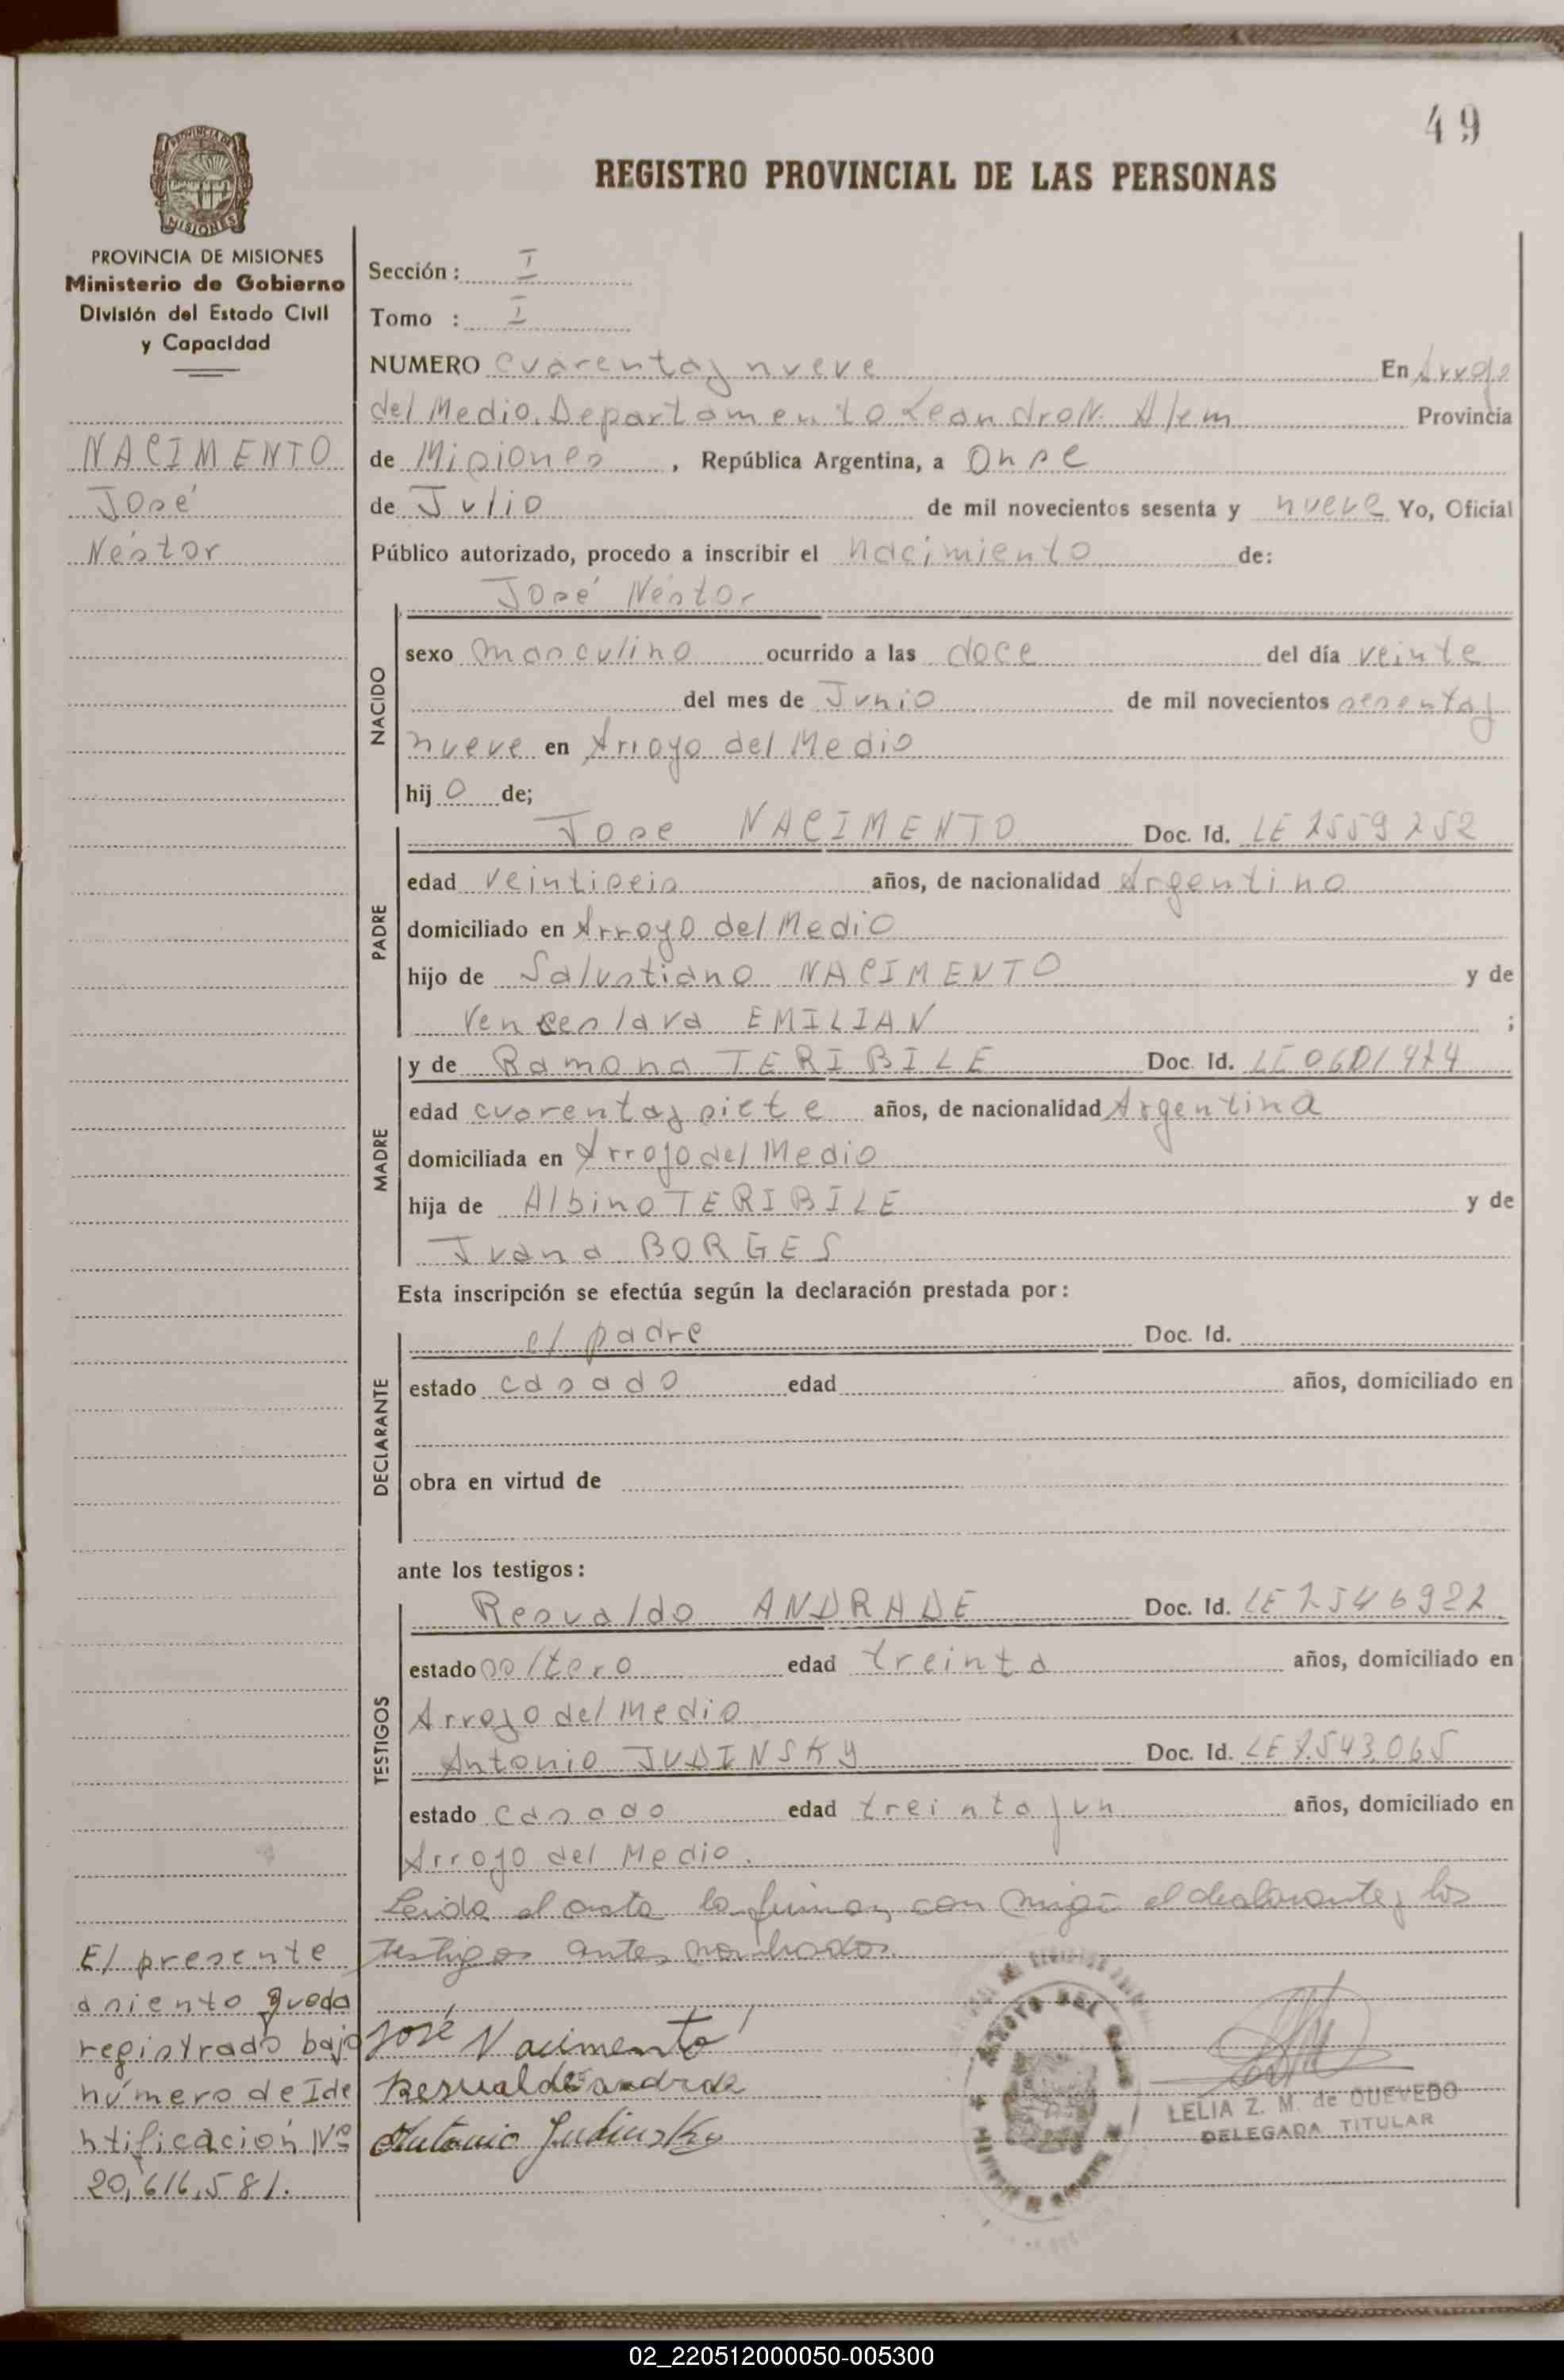 49
REGISTRO PROVINCIAL DE LAS PERSONAS
PROVINCIA DE
MISIONES
PROVINCIA DE MISIONES
Ministerio de Gobierno
División del Estado Civil
y Capacidad
NACIMENTO
José
Néstor
Sección: I
Tomo : I
NUMERO cuarentay nueve En Arroyo
del Medio. Departamento Leandro N. Alem Provincia
de Misiones, República Argentina, a Onse
de Julio de mil novecientos sesenta y nueve Yo, Oficial
Público autorizado, procedo a inscribir el nacimiento de:
José Néstor
NACIDO
sexo masculino ocurrido a las doce del día veinte
del mes de Junio de mil novecientos sesentay
nueve en Arroyo del Medio
hijo de;
PADRE
Jose NACIMENTO Doc. Id. LE 7559252
edad veintiseis años, de nacionalidad Argentino
domiciliado en Arroyo del Medio
hijo de Salustiano NACIMENTO y de
Venseslava EMILIAN ;
MADRE
y de Ramona TERIBILE Doc. Id.
edad cuarentay siete años, de nacionalidad Argentina
domiciliada en Arroyo del Medio
hija de Albino TERIBILE y de
Juana BORGES
Esta inscripción se efectúa según la declaración prestada por:
DECLARANTE
el padre Doc. Id.
estado casado edad años, domiciliado en
obra en virtud de
ante los testigos:
TESTIGOS
Resvaldo ANDRADE Doc. Id. LE 7546922
estado soltero edad treinta años, domiciliado en
Arroyo del Medio
Antonio JUDINSKY Doc. Id. LE 7.543.065
estado casado edad treintayun años, domiciliado en
Arroyo del Medio.
Leida el acta la firman con migo el declarante y los
testigos antes nombrados.
El presente
asiento queda
registrado bajo
número de Ide
ntificación Nº
20,616,581.
José Nacimento
Resvaldo andrade
Antonio Judinsky
LELIA Z. M. de QUEVEDO
DELEGADA TITULAR
02_220512000050-005300